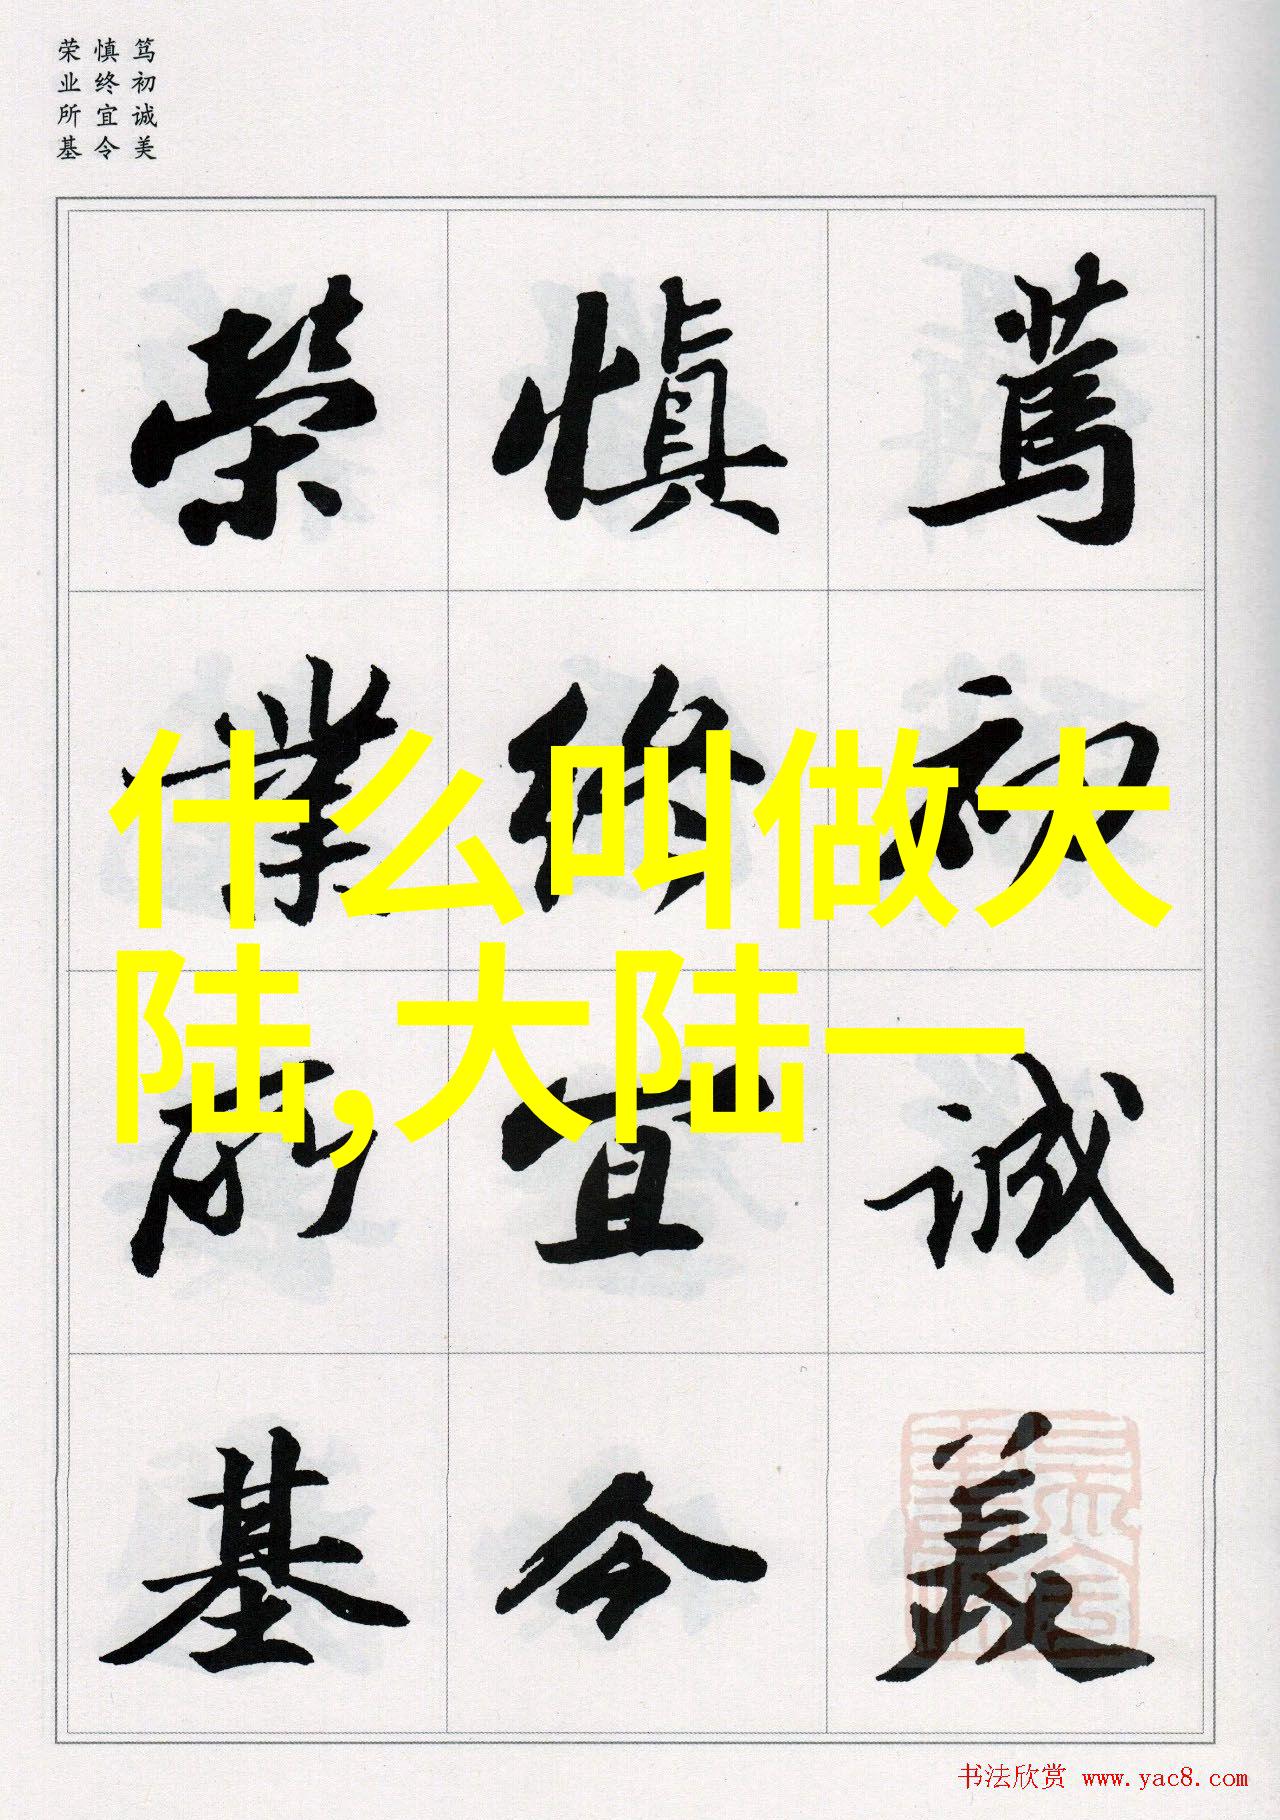 笃初诚美
慎终宜令
荣业所基
篤初誠美
慎終宜令
榮業所基
什么叫做大
陆,大陆一
书法欣赏 www.yac8.com